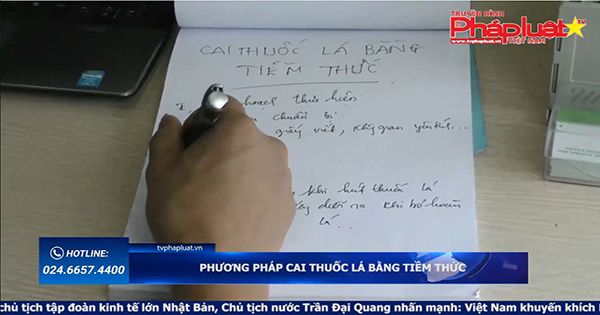 TRUYỀN HÌNH
Phápluật
TV
VIỆT NAM
www.tvphapluat.vn
CAI THUỐC LÁ BẰNG
TIỀM THỨC
hoạch thực hiện
chuẩn bị
giấy viết, không gian yên tĩnh...
khi hút thuốc lá
diễn ra khi bỏ hoàn
lá...
tvphapluat.vn
HOTLINE:
024.6657.4400
PHƯƠNG PHÁP CAI THUỐC LÁ BẰNG TIỀM THỨC
chủ tịch tập đoàn kinh tế lớn Nhật Bản, Chủ tịch nước Trần Đại Quang nhấn mạnh: Việt Nam khuyến khích